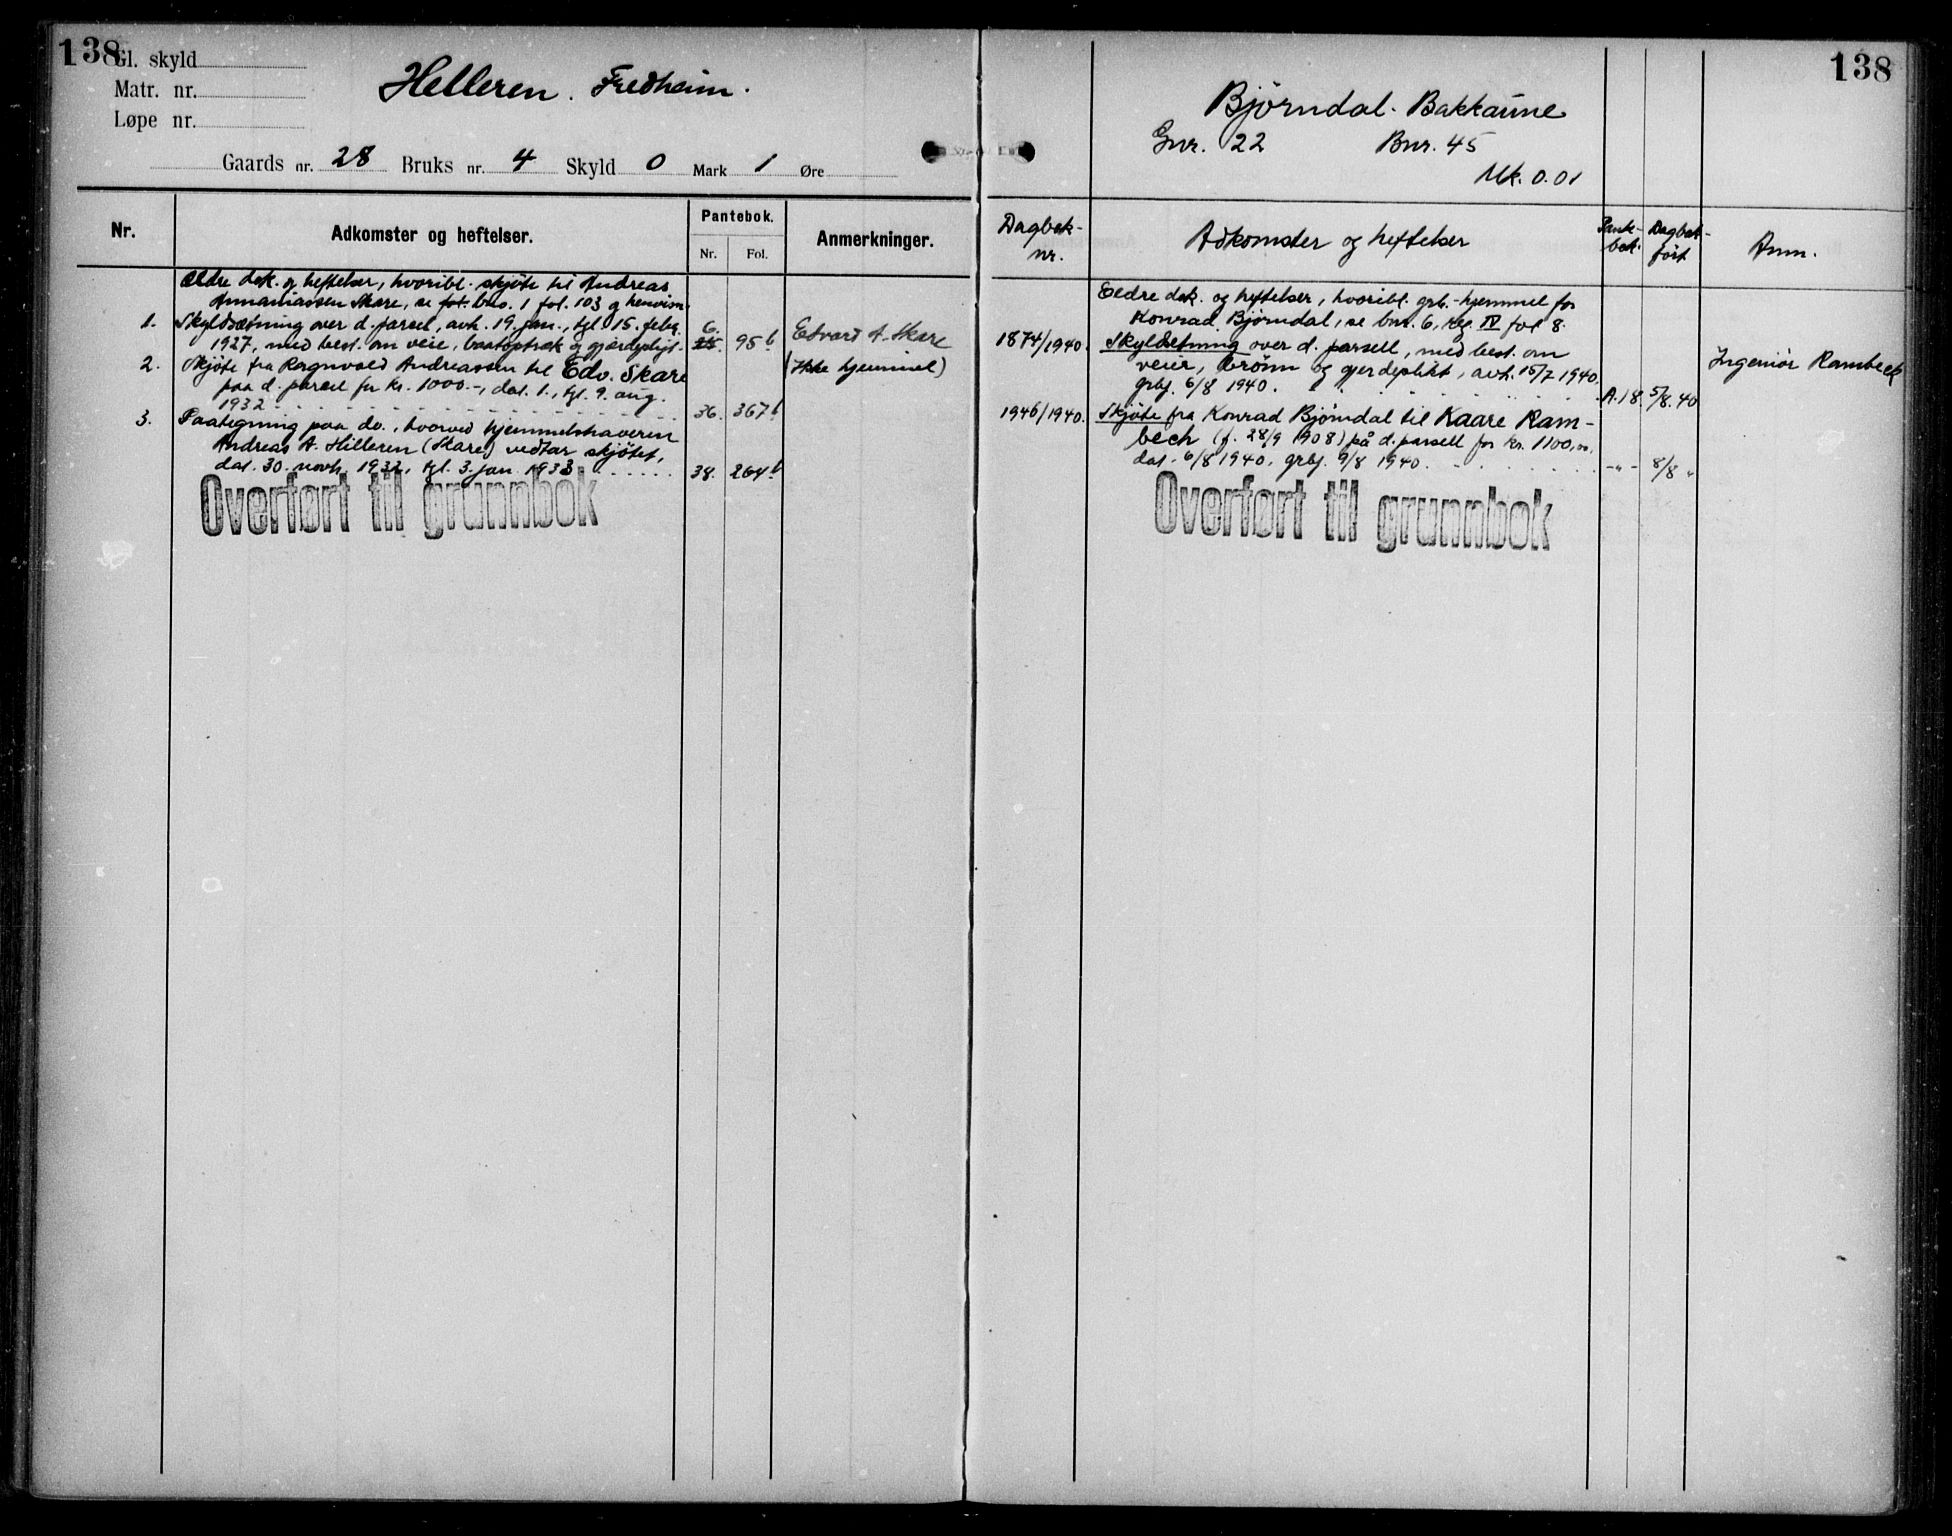 138
Gl. skyld
Matr. nr.
Løpe nr.
Helleren. Fredheim.
Gaards nr. 28 Bruks nr. 4 Skyld 0 Mark 1 Øre
Nr.
Adkomster og heftelser.
Pantebok.
Nr. Fol.
Anmerkninger.
Ældre dok. og heftelser, hvoribl. skjöte til Andreas
Annaniassen Skare, se fol. bno. 1 fol. 103 g henvisn.
1. Skyldsætning over d. parcel, avh. 19. jan., tgl. 15. febr. 6.
1927, med best. om veie, baatoptræk og gjærdepligt. 25. 95b Edvard A. Skare
2. Skjöte fra Ragnvald Andreassen til Edv. Skare (Ikke hjemmel)
paa d. parcel for kr. 1000.-, dat. 1., tgl. 9. aug.
1932 . . . . . . . . . . . . . . . . 36. 367b
3. Paategning paa do., hvorved hjemmelshaveren
Andreas A. Hilleren (Skare) vedtar skjötet,
dat. 30. novh. 1932, tgl. 3. jan. 1933. . . . . . 38. 264b
Overført til grunnbok
138
Bjørndal. Bakkaune
Gnr. 22 Bnr. 45
Mk. 0.01
Dagbok-
nr.
Adkomster og heftelser
Pante-
bok.
Dagbok-
ført
Anm.
Eldre dok. og heftelser, hvoribl. grb.-hjemmel for
Konrad Bjørndal, se bnr. 6, reg. IV fol 8.
1874/1940. Skyldsetning over d. parsell, med best. om
veier, brønn og gjerdeplikt, avh. 15/7 1940, Ingeniør Rambeck
grbf. 6/8 1940. . . . . . . . A.18. 5/8.40
1946/1940. Skjøte fra Konrad Bjørndal til Kaare Ram-
bech (f. 28/9 1908) på d. parsell for kr. 1100,00,
dat. 6/8 1940, grbf. 9/8 1940. . . . . . . -"- 8/8 "
Overført til grunnbok